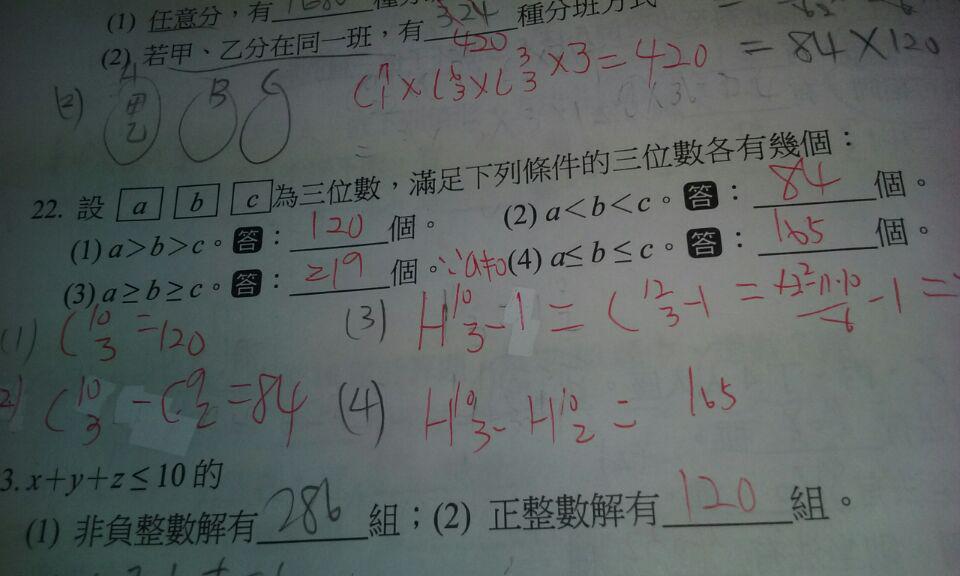 (1) 任意分，有 1680
(2) 若甲、乙分在同一班，有 324 種分班方式
420
A
(2) 甲乙 B C
C 7 1 × C 6 3 × C 3 3 × 3 = 420 = 84 × 120
22. 設 a b c 為三位數，滿足下列條件的三位數各有幾個：
(1) a>b>c。答： 120 個。 (2) a<b<c。答： 84 個。
(3) a≥b≥c。答： 219 個。∵a≠0 (4) a≤b≤c。答： 165 個。
(1) C 10 3 = 120 (3) H 10 3 - 1 = C 12 3 - 1 = 12·11·10 / 6 - 1 =
2) C 10 3 - C 9 2 = 84 (4) H 10 3 - H 10 2 = 165
3. x+y+z≤10 的
(1) 非負整數解有 286 組；(2) 正整數解有 120 組。